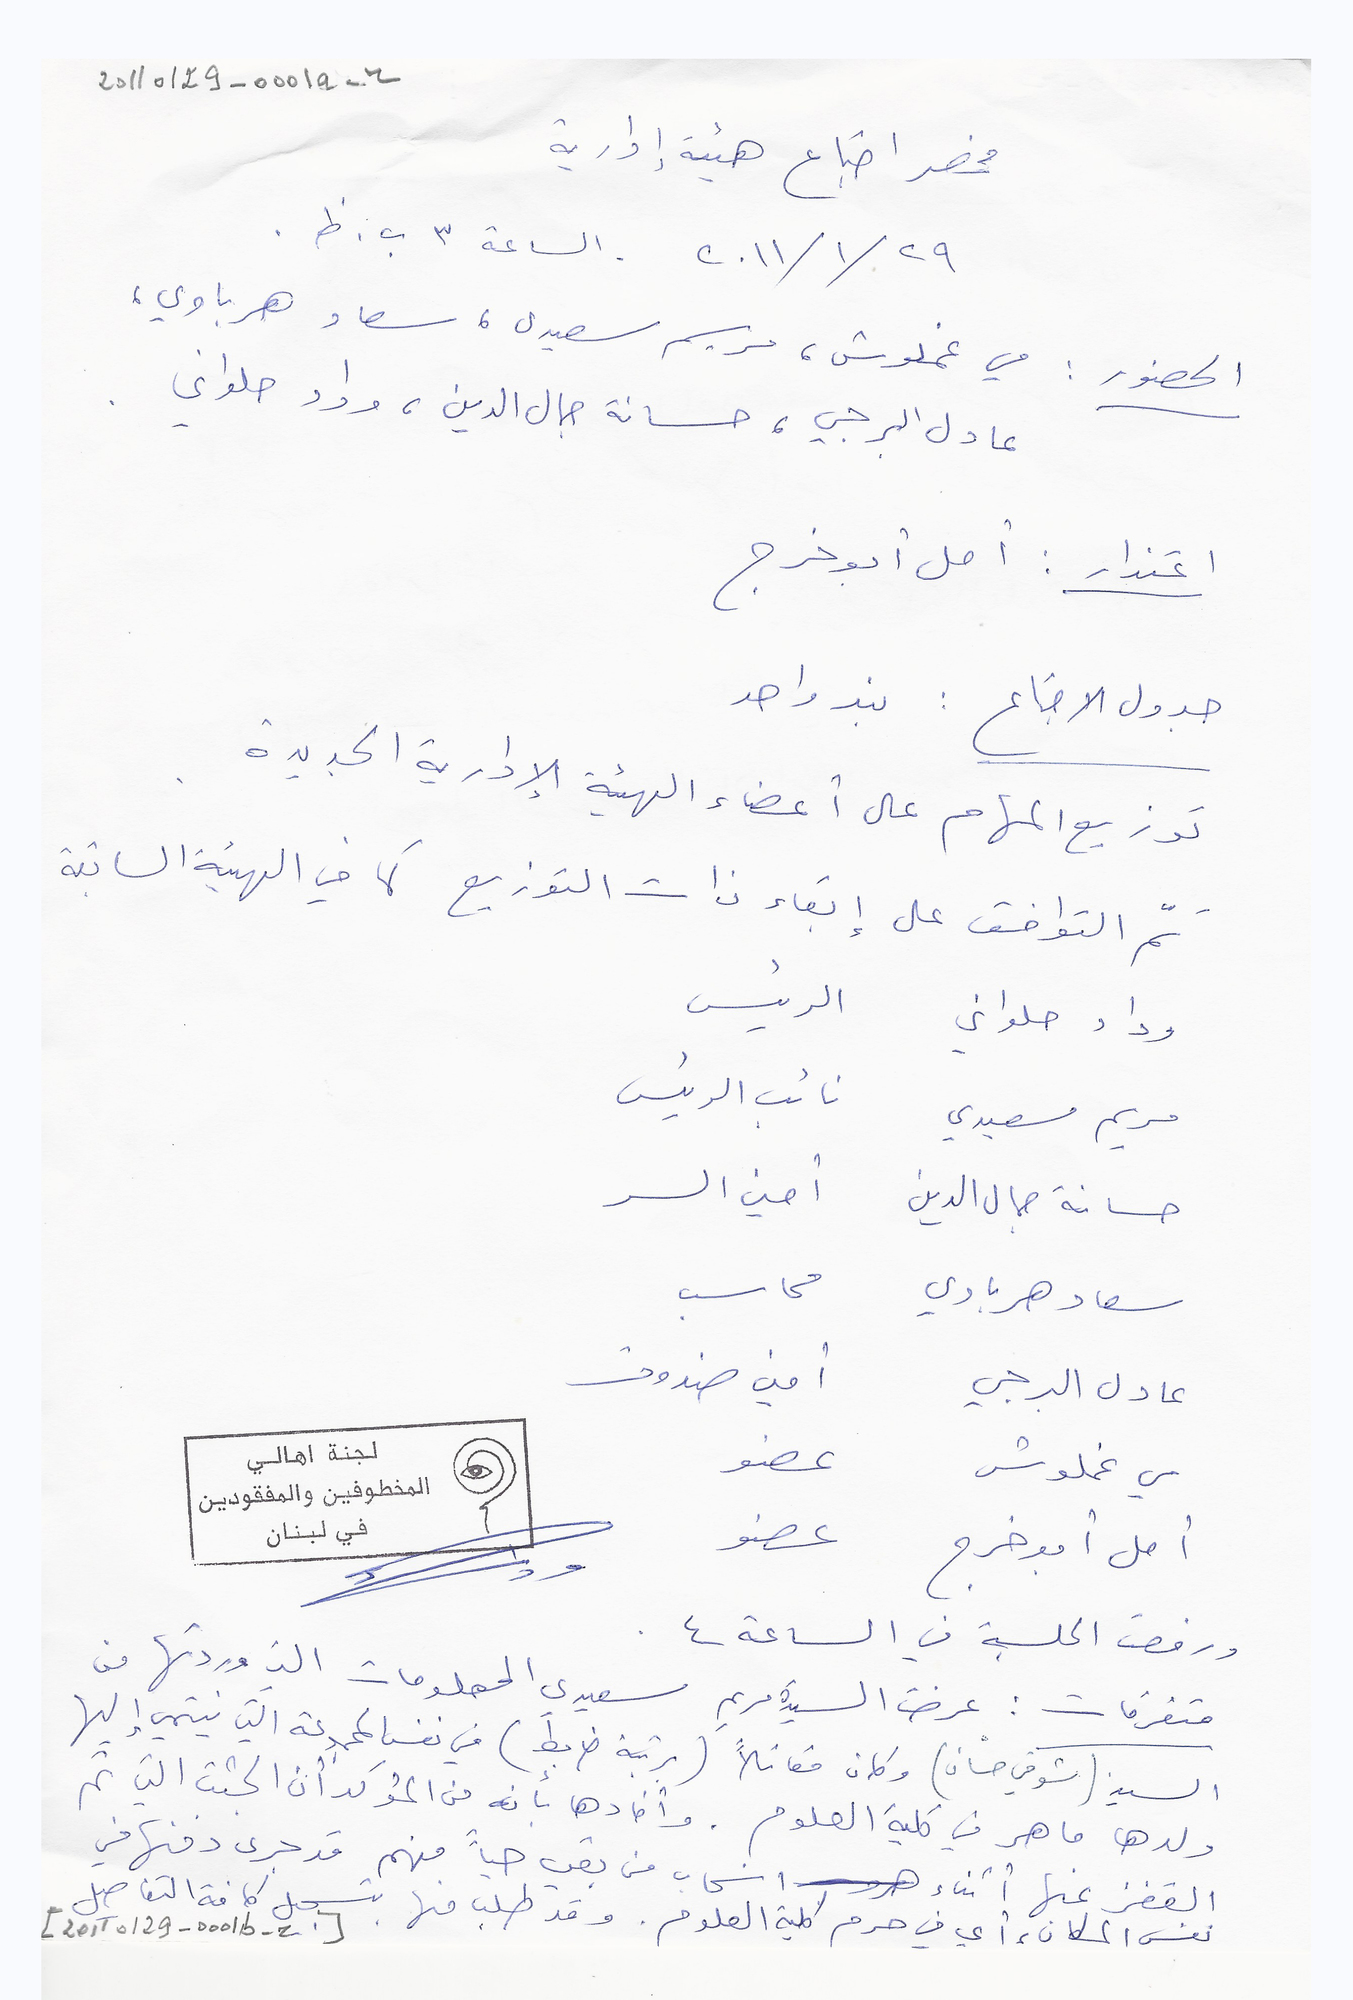 20110129-0001a-ج
محضر اجتماع هيئة إدارية
٢٩/١/٢٠١١ . الساعة ٣ ب.ظ .
الحضور : مي غملوش ، مريم سعيدي ، سعاد هرباوي ،
عادل البرجي ، حسانة جمال الدين ، وداد حلواني .
اعتذار : أمل أبو خرج
جدول الاجتماع : بند واحد
توزيع المهام على أعضاء الهيئة الإدارية الجديدة .
تمّ التوافق على إبقاء ذات التوزيع كما في الهيئة السابقة
وداد حلواني الرئيس
مريم سعيدي نائب الرئيس
حسانة جمال الدين أمين السر
سعاد هرباوي محاسب
عادل البرجي أمين صندوق
مي غملوش عضو
أمل أبو خرج عضو
لجنة اهالي
المخطوفين والمفقودين
في لبنان
وداد
ورفعت الجلسة في الساعة ٤ .
متفرقات : عرضت السيدة مريم سعيدي المعلومات التي وردتها من
السيد (شوقي حسّان) وكان مقاتلاً (برتبة ضابط) في نفس المجموعة التي ينتمي إليها
ولدها ماهر في كلية العلوم . وأفادها بأنه من المؤكد أن الجثث التي تم
القفز عنها أثناء انسحاب من بقي حياً منهم قد جرى دفنها في
نفس المكان ، أي في حرم كلية العلوم . وقد طلب منها بتسجيل كافة التفاصيل
[20110129-0001b-ج]